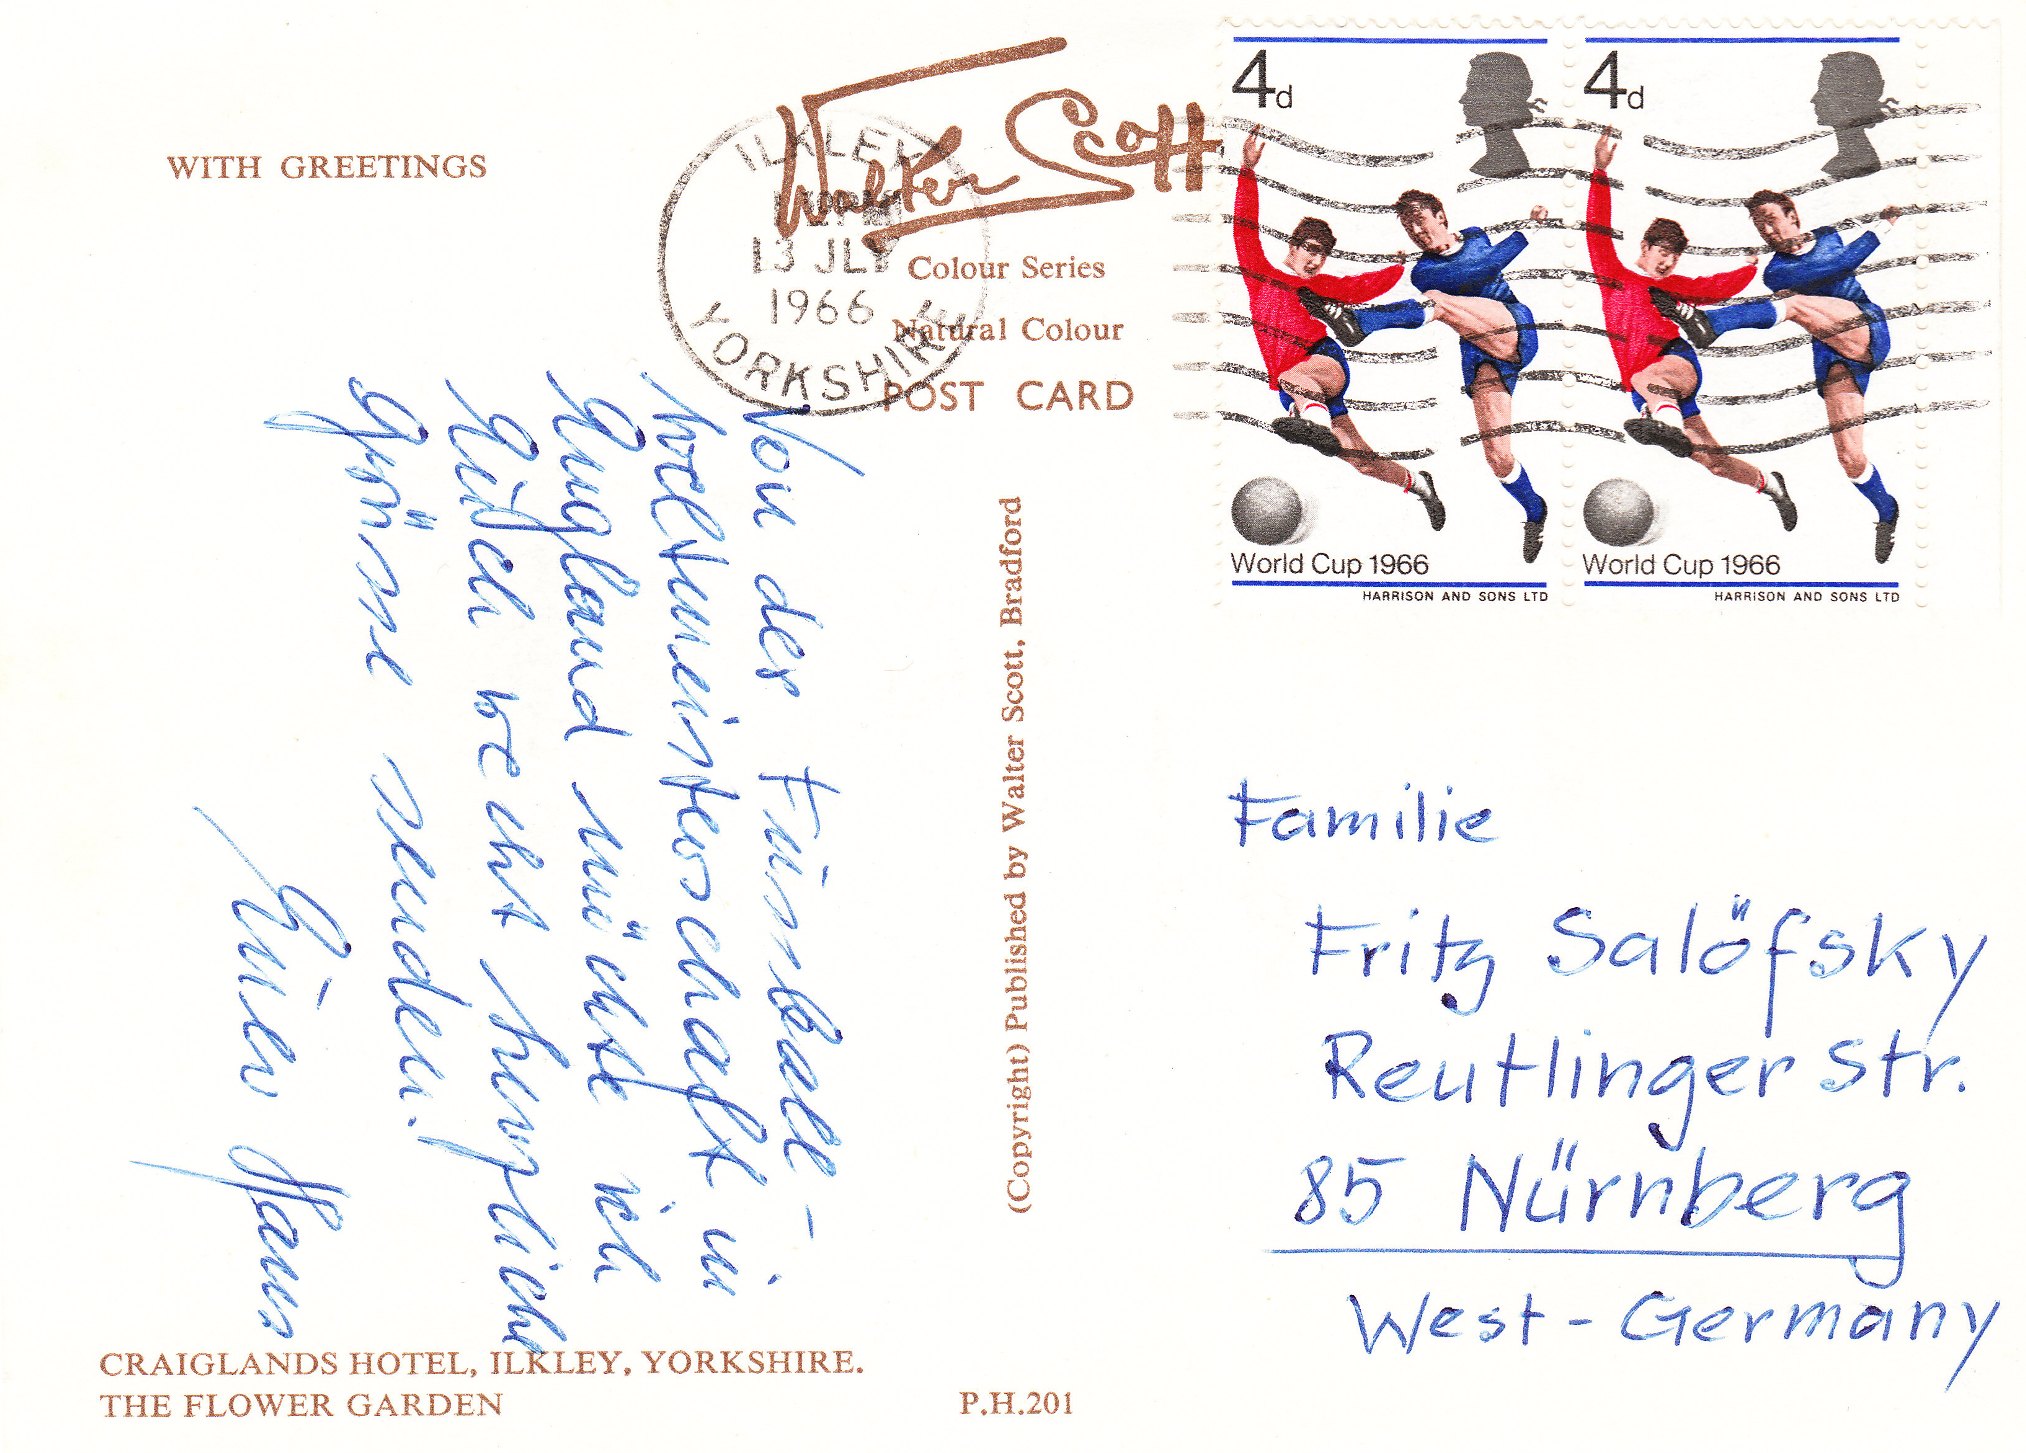 WITH GREETINGS
Walter Scott
Colour Series
Natural Colour
POST CARD
ILKLEY
13 JLY
1966
YORKSHIRE
4d
World Cup 1966
HARRISON AND SONS LTD
4d
World Cup 1966
HARRISON AND SONS LTD
Von der Fussball-
weltmeisterschaft in
England möchte ich
Euch recht herzliche
Grüsse senden!
Euer Hans
(Copyright) Published by Walter Scott, Bradford
Familie
Fritz Salöfsky
Reutlinger Str.
85 Nürnberg
West-Germany
CRAIGLANDS HOTEL, ILKLEY, YORKSHIRE.
THE FLOWER GARDEN
P.H.201